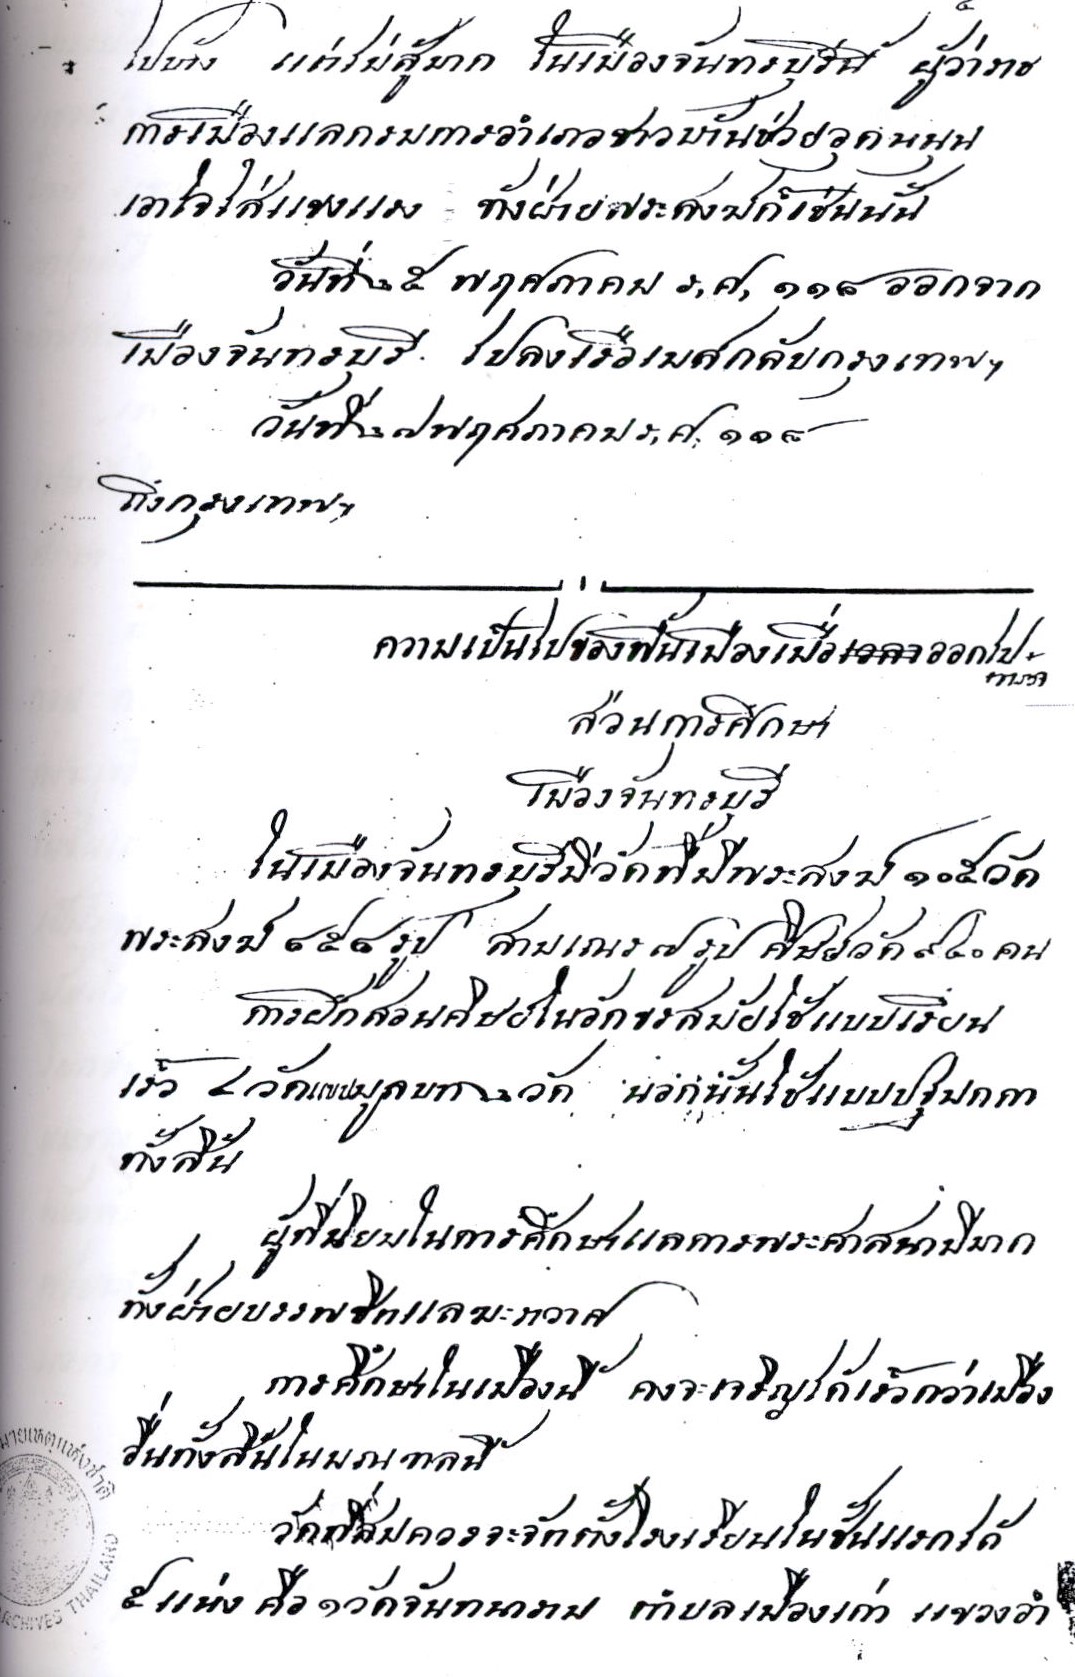 ไปบ้าง แต่ไม่สู้มาก ในเมืองจันทรบุรีนี้ ผู้ว่าราช
การเมืองแลกรมการอำเภอชาวบ้านช่วยอุดหนุน
เอาใจใส่แขงแรง ทั้งฝ่ายพระสงฆ์ก็เช่นนั้น
วันที่ ๒๕ พฤศภาคม ร,ศ, ๑๑๘ ออกจาก
เมืองจันทรบุรี ไปลงเรือเมล์กลับกรุงเทพฯ
วันที่ ๒๗ พฤศภาคม ร,ศ, ๑๑๘
ถึงกรุงเทพฯ
ความเป็นไปของพื้นเมืองเมื่อเวลาออกไป
ส่วนการศึกษา
เมืองจันทรบุรี
ในเมืองจันทรบุรีมีวัดที่มีพระสงฆ์ ๑๐๕ วัด
พระสงฆ์ ๘๕๘ รูป สามเณร ๗ รูป ศิษย์วัด ๙๔๐ คน
การฝึกสอนศิษย์ในวัดขรสมัยใช้แบบเรียน
เร็ว ๔ วัด มูลบท ๒ วัด นอกนั้นใช้แบบปฐมกกา
ทั้งสิ้น
ผู้ที่นิยมในการศึกษาแลการพระศาสนามีมาก
ทั้งฝ่ายบรรพชิตแลฆะราวาศ
การศึกษาในเมืองนี้ คงจะเจริญได้เร็วกว่าเมือง
อื่นทั้งสิ้นในมณฑลนี้
วัดที่สมควรจะจัดตั้งโรงเรียนในชั้นแรกได้
๕ แห่ง คือ ๑ วัดจันทนาราม ตำบลเมืองเก่า แขวงอำ
มายเหตุแห่งชาติ
ARCHIVES THAILAND